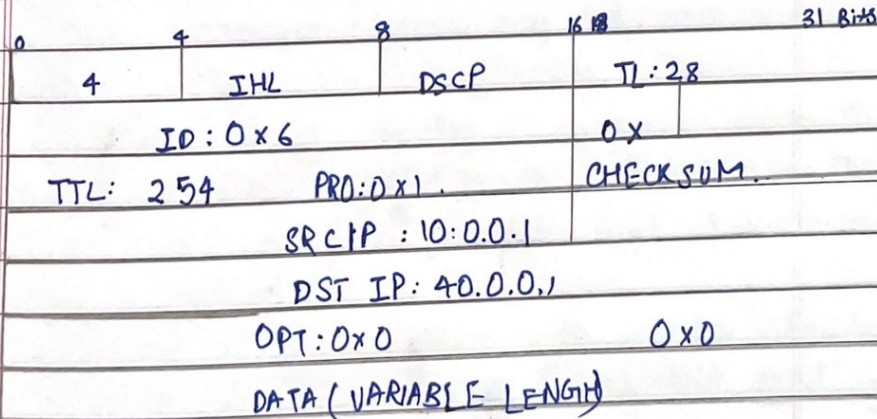 0 4 8 16 31 Bits
4 IHL DSCP TL:28
ID: 0x6 0x
TTL: 254 PRO:0x1. CHECKSUM.
SRCIP : 10:0.0.1
DST IP: 40.0.0.1
OPT:0x0 0x0
DATA (VARIABLE LENGTH)